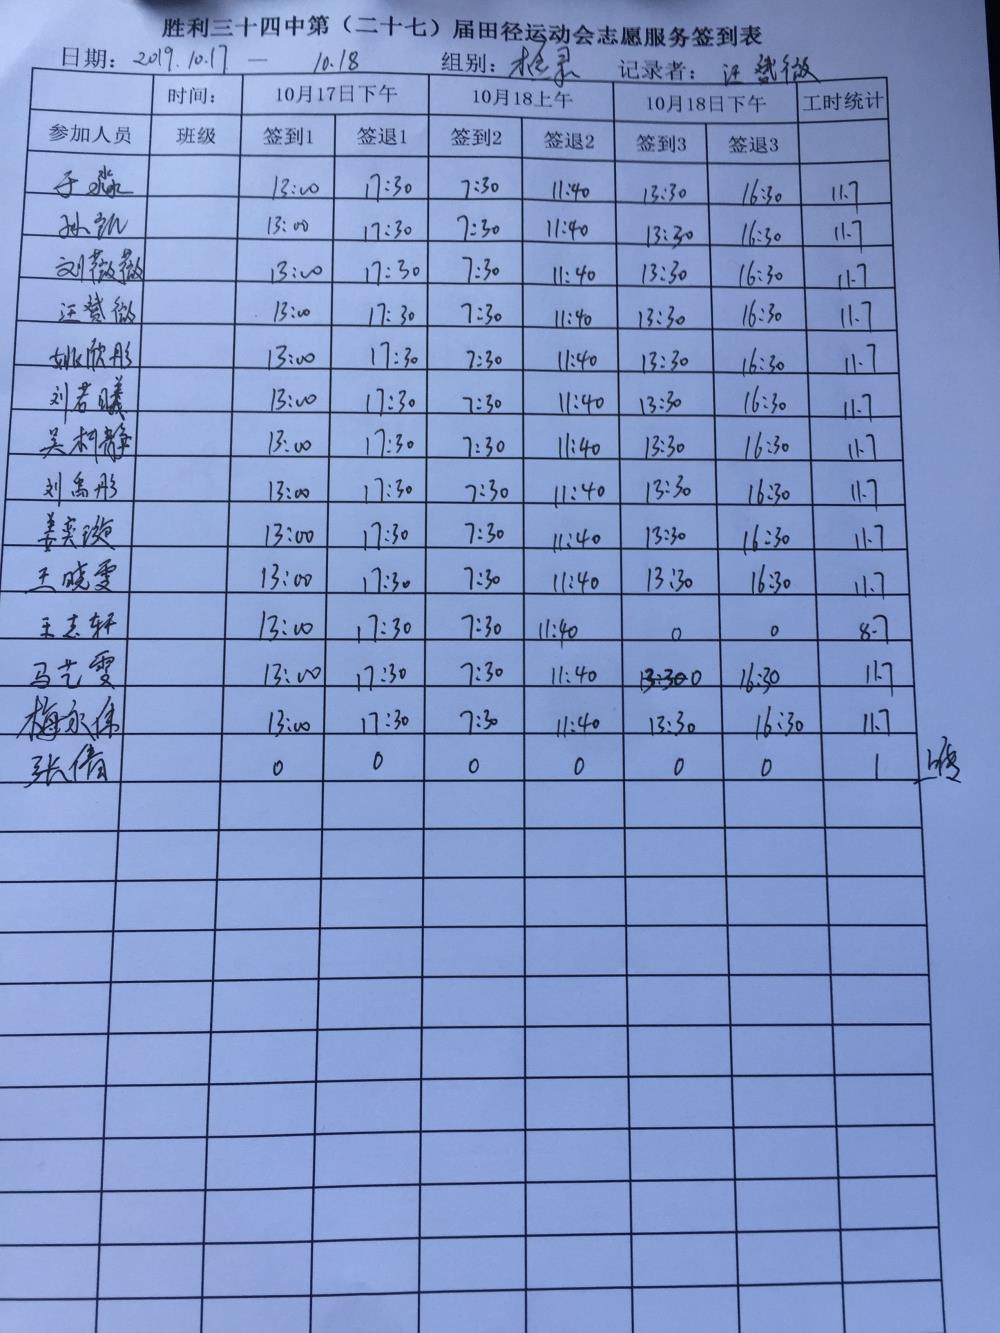 胜利三十四中第（二十七）届田径运动会志愿服务签到表
日期：2019.10.17 — 10.18 组别：检录 记录者：汪赞薇
时间： 10月17日下午 10月18上午 10月18日下午 工时统计
参加人员 班级 签到1 签退1 签到2 签退2 签到3 签退3
于淼 13:00 17:30 7:30 11:40 13:30 16:30 11.7
孙凯 13:00 17:30 7:30 11:40 13:30 16:30 11.7
刘薇薇 13:00 17:30 7:30 11:40 13:30 16:30 11.7
汪赞薇 13:00 17:30 7:30 11:40 13:30 16:30 11.7
姚欣彤 13:00 17:30 7:30 11:40 13:30 16:30 11.7
刘若曦 13:00 17:30 7:30 11:40 13:30 16:30 11.7
吴柯静 13:00 17:30 7:30 11:40 13:30 16:30 11.7
刘禹彤 13:00 17:30 7:30 11:40 13:30 16:30 11.7
姜奕 13:00 17:30 7:30 11:40 13:30 16:30 11.7
王晓雯 13:00 17:30 7:30 11:40 13:30 16:30 11.7
王志轩 13:00 17:30 7:30 11:40 0 0 8.7
马艺雯 13:00 17:30 7:30 11:40 13:30 0 16:30 11.7
梅永伟 13:00 17:30 7:30 11:40 13:30 16:30 11.7
张倩 0 0 0 0 0 0 1